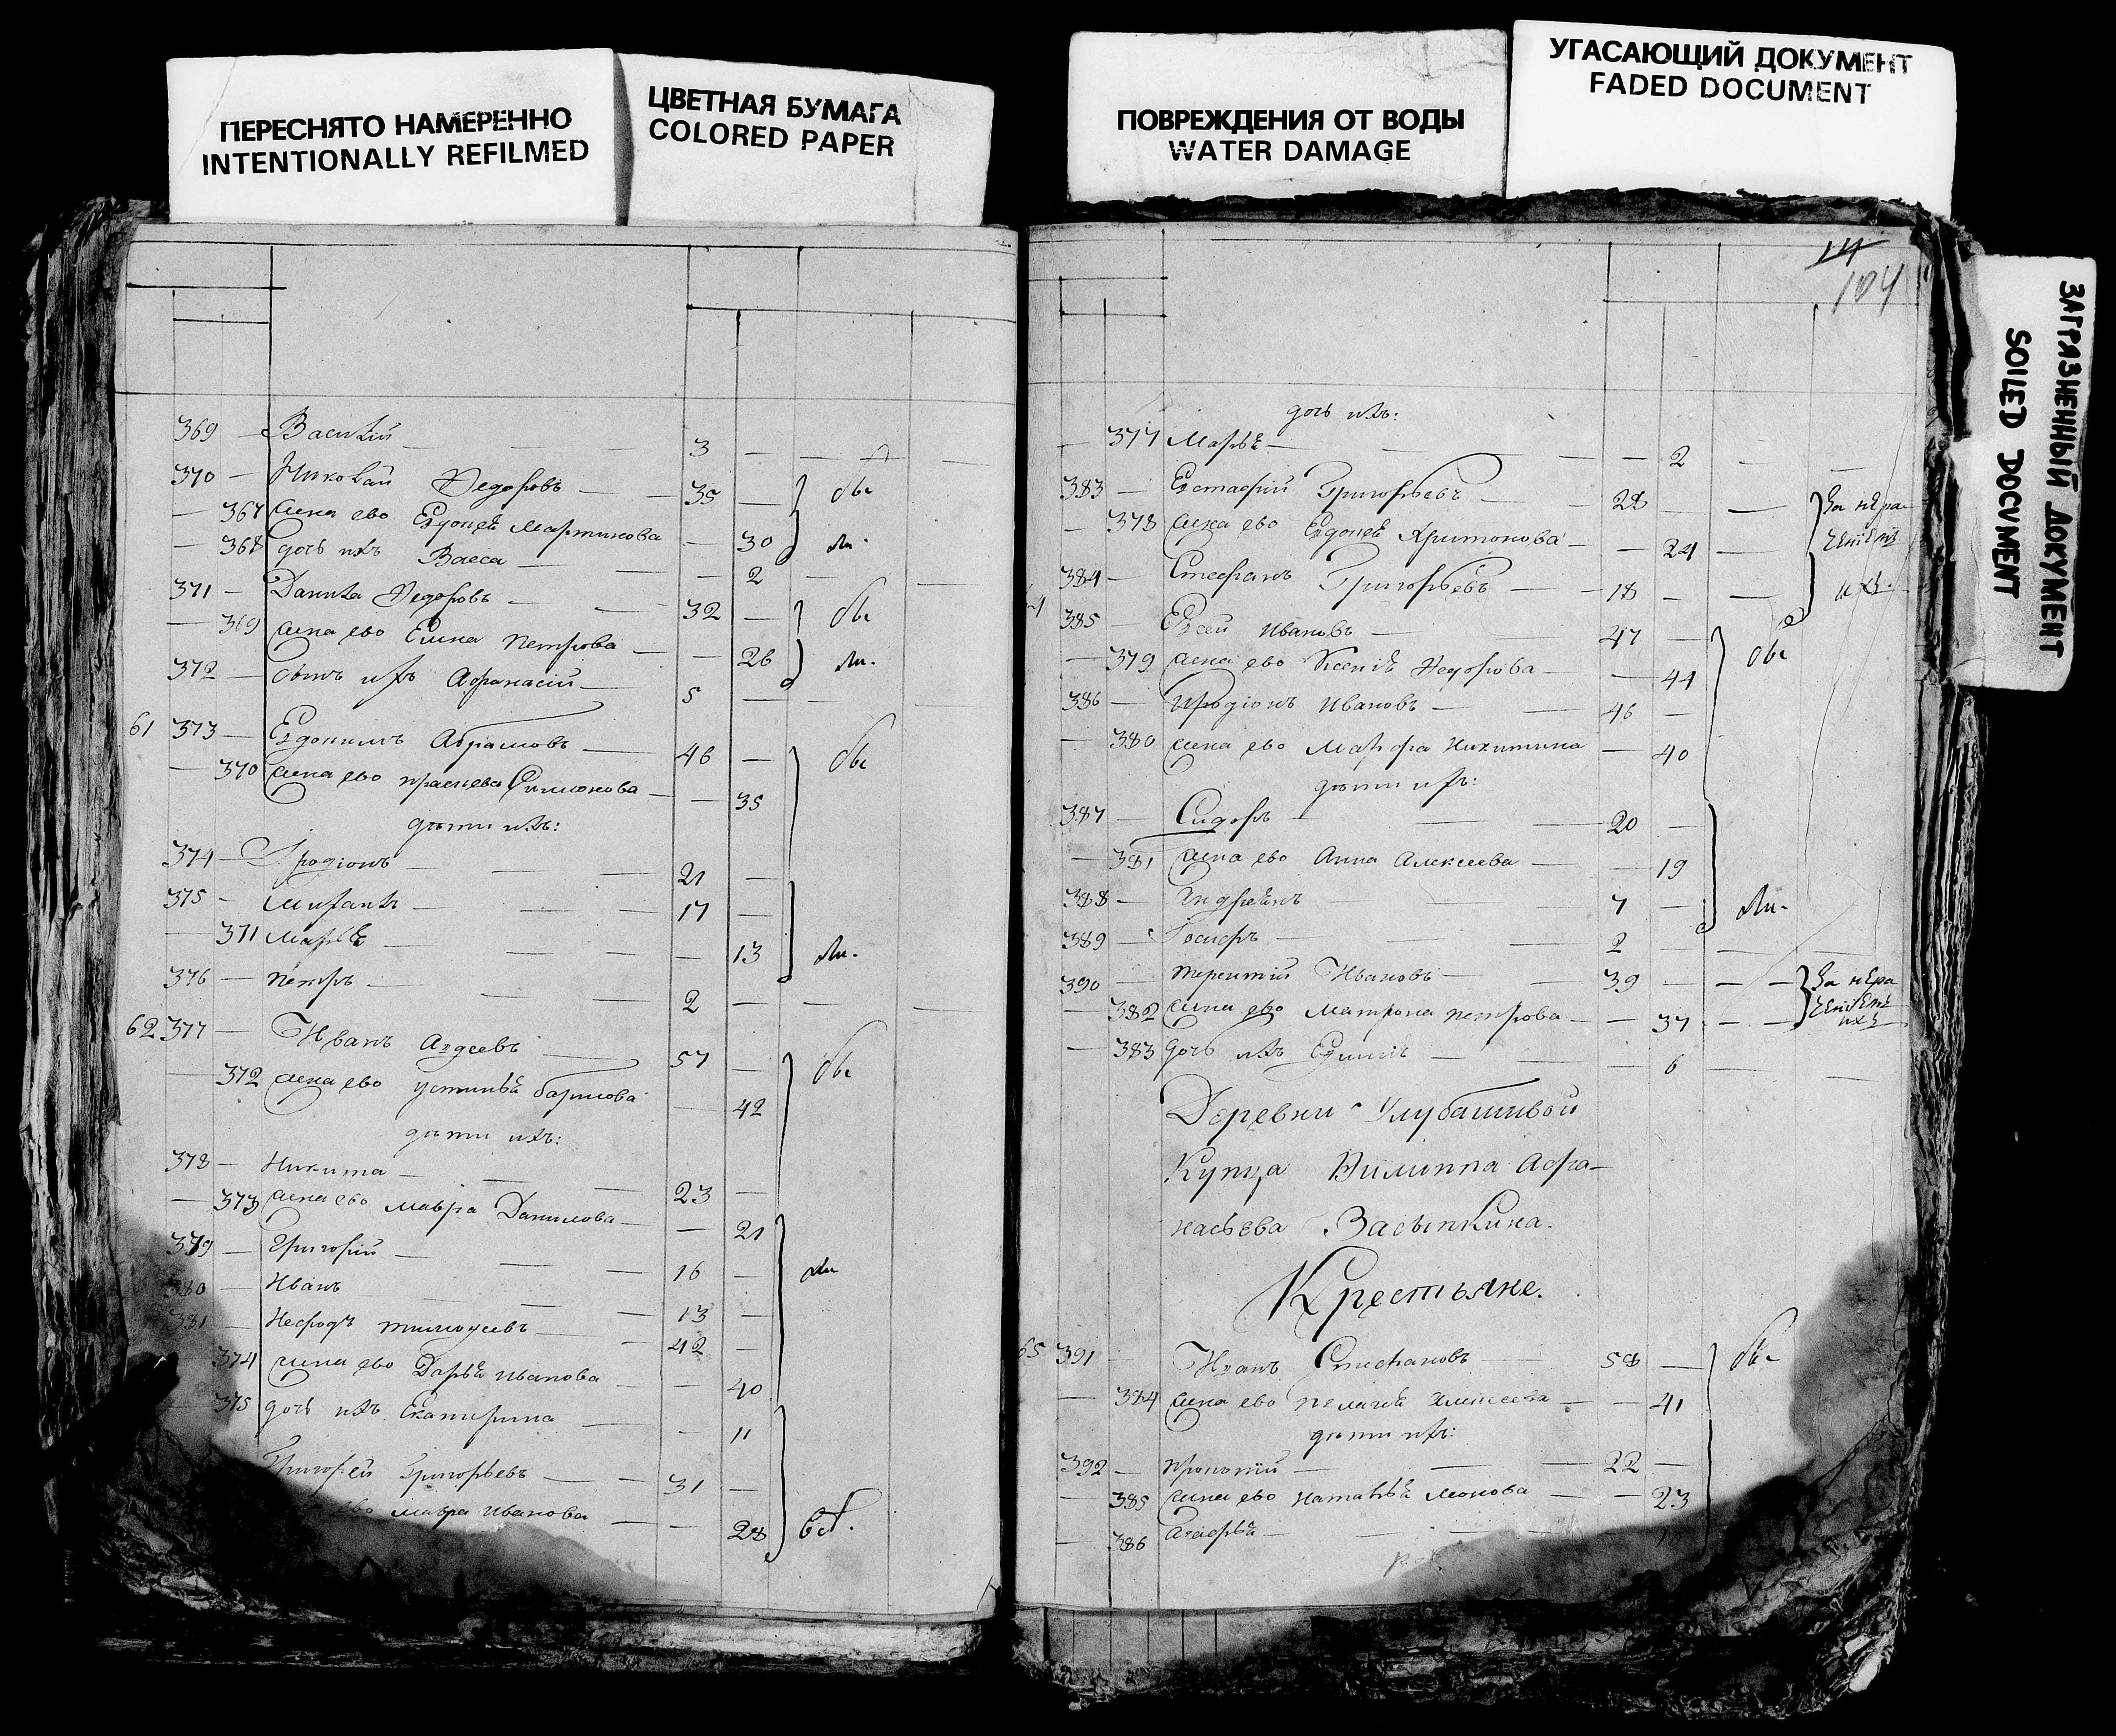 ПЕРЕСНЯТО НАМЕРЕННО
INTENTIONALLY REFILMED
ЦВЕТНАЯ БУМАГА
COLORED PAPER
ПОВРЕЖДЕНИЯ ОТ ВОДЫ
WATER DAMAGE
УГАСАЮЩИЙ ДОКУМЕНТ
FADED DOCUMENT
ЗАГРЯЗНЕННЫЙ ДОКУМЕНТ
SOILED DOCUMENT
369 — Василий — 3 —
370 — Николай Федоровъ — 35 —
— 367 жена ево Евдокея Мартинова — 30
— 368 дочь ихъ Васса — 2
371 — Данила Федоровъ — 32 —
— 369 жена ево Елена Петрова — 26
372 — сынъ ихъ Афанасий — 5 —
61 373 — Евдокимъ Абрамовъ — 46 —
— 370 жена ево Прасковья Симонова — 35
дѣти ихъ:
374 — Иродионъ — 21 —
375 — Михаила — 17 —
371 Марья — 13
376 — Петръ — 2 —
62 377 — Иванъ Авдеевъ — 57 —
— 372 жена ево Устинья Борисова — 42
дѣти ихъ:
378 — Никита — 23 —
— 373 жена ево Мавра Данилова — 21
379 — Григорий — 16 —
380 — Иванъ — 13 —
381 — Нефодъ Тимофеевъ — 42 —
374 жена ево Дарья Иванова — 40
375 дочь ихъ Екатерина — 11
Григорей Григорьевъ — 31 —
ево Мавра Иванова — 28
104
дочь ихъ:
— 377 Марья — 2
383 — Евстафий Григорьевъ — 28
— 378 жена ево Евдокея Харитонова — 24
384 — Стефанъ Григорьевъ — 18 —
385 — Евсей Ивановъ — 47 —
— 379 жена ево Ксения Федорова — 44
386 — Иродионъ Ивановъ — 46 —
— 380 жена ево Марфа Никитина — 40
дѣти ихъ:
387 Сидоръ — 20 —
— 381 жена ево Анна Алексеева — 19
388 — Андреянъ 7 —
389 — Иосифъ — 2
390 — Терентий Ивановъ — 39 —
— 382 жена ево Матрона Петрова — 37
— 383 дочь ихъ — 6
Деревни Улубашивой
Купца Филиппа Афа-
насьева Засыпкина.
Крестьяне.
65 391 — Иванъ Стефановъ — 58 —
— 384 жена ево Пелагея Елисеева — 41
дѣти ихъ:
392 — 22 —
— 385 жена ево Наталья — 23
— 386 Агафья —